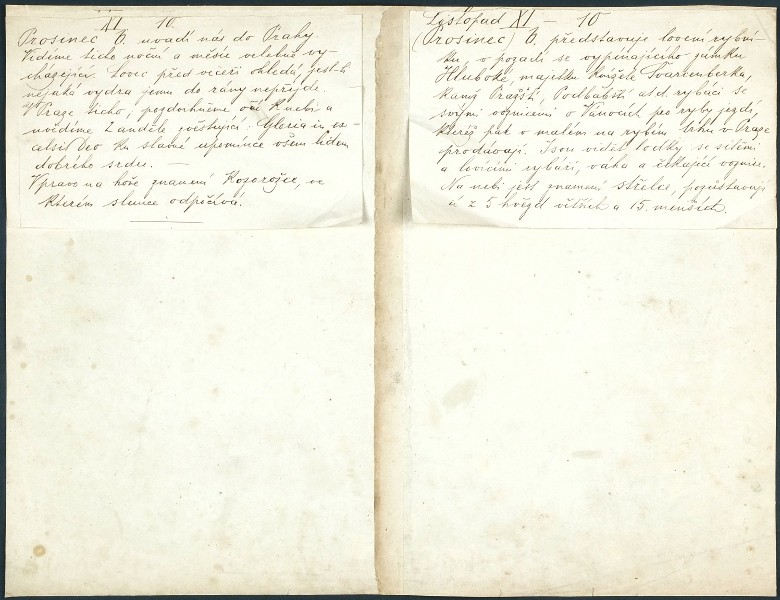 XI 10.
Prosinec 6. uvádí nás do Prahy.
Vidíme ticho noční a měsíc velebně vy-
cházející. Lovec před večeří ohledá, jest-li
nějaká vydra jemu do rány nepřijde.
V Praze ticho, pozdvihneme oči k nebi a
uvidíme anděle zvěstující: Gloria in ex-
celsis Deo ku slavné upomínce všem lidem
dobrého srdce. —
Vpravo na hoře znamení Kozorožce, ve
kterém slunce odpočívá.
Listopad XI — 10
(Prosinec) 6. představuje lovení rybní-
ku, v pozadí se vypínajícího zámku
Hluboké, majetku knížete Švarcenberka,
kamž Pražští, Podbabští atd. rybáci se
svými voznicemi o Vánocích pro ryby jezdí,
kteréž pak v malém na rybím trhu v Praze
prodávají. Jsou vidět loďky se sítěmi
a lovícími rybáři, váha a čekající voznice.
Na nebi jest znamení střelce, pozůstávají-
cí z 5 hvězd větších a 15. menších.